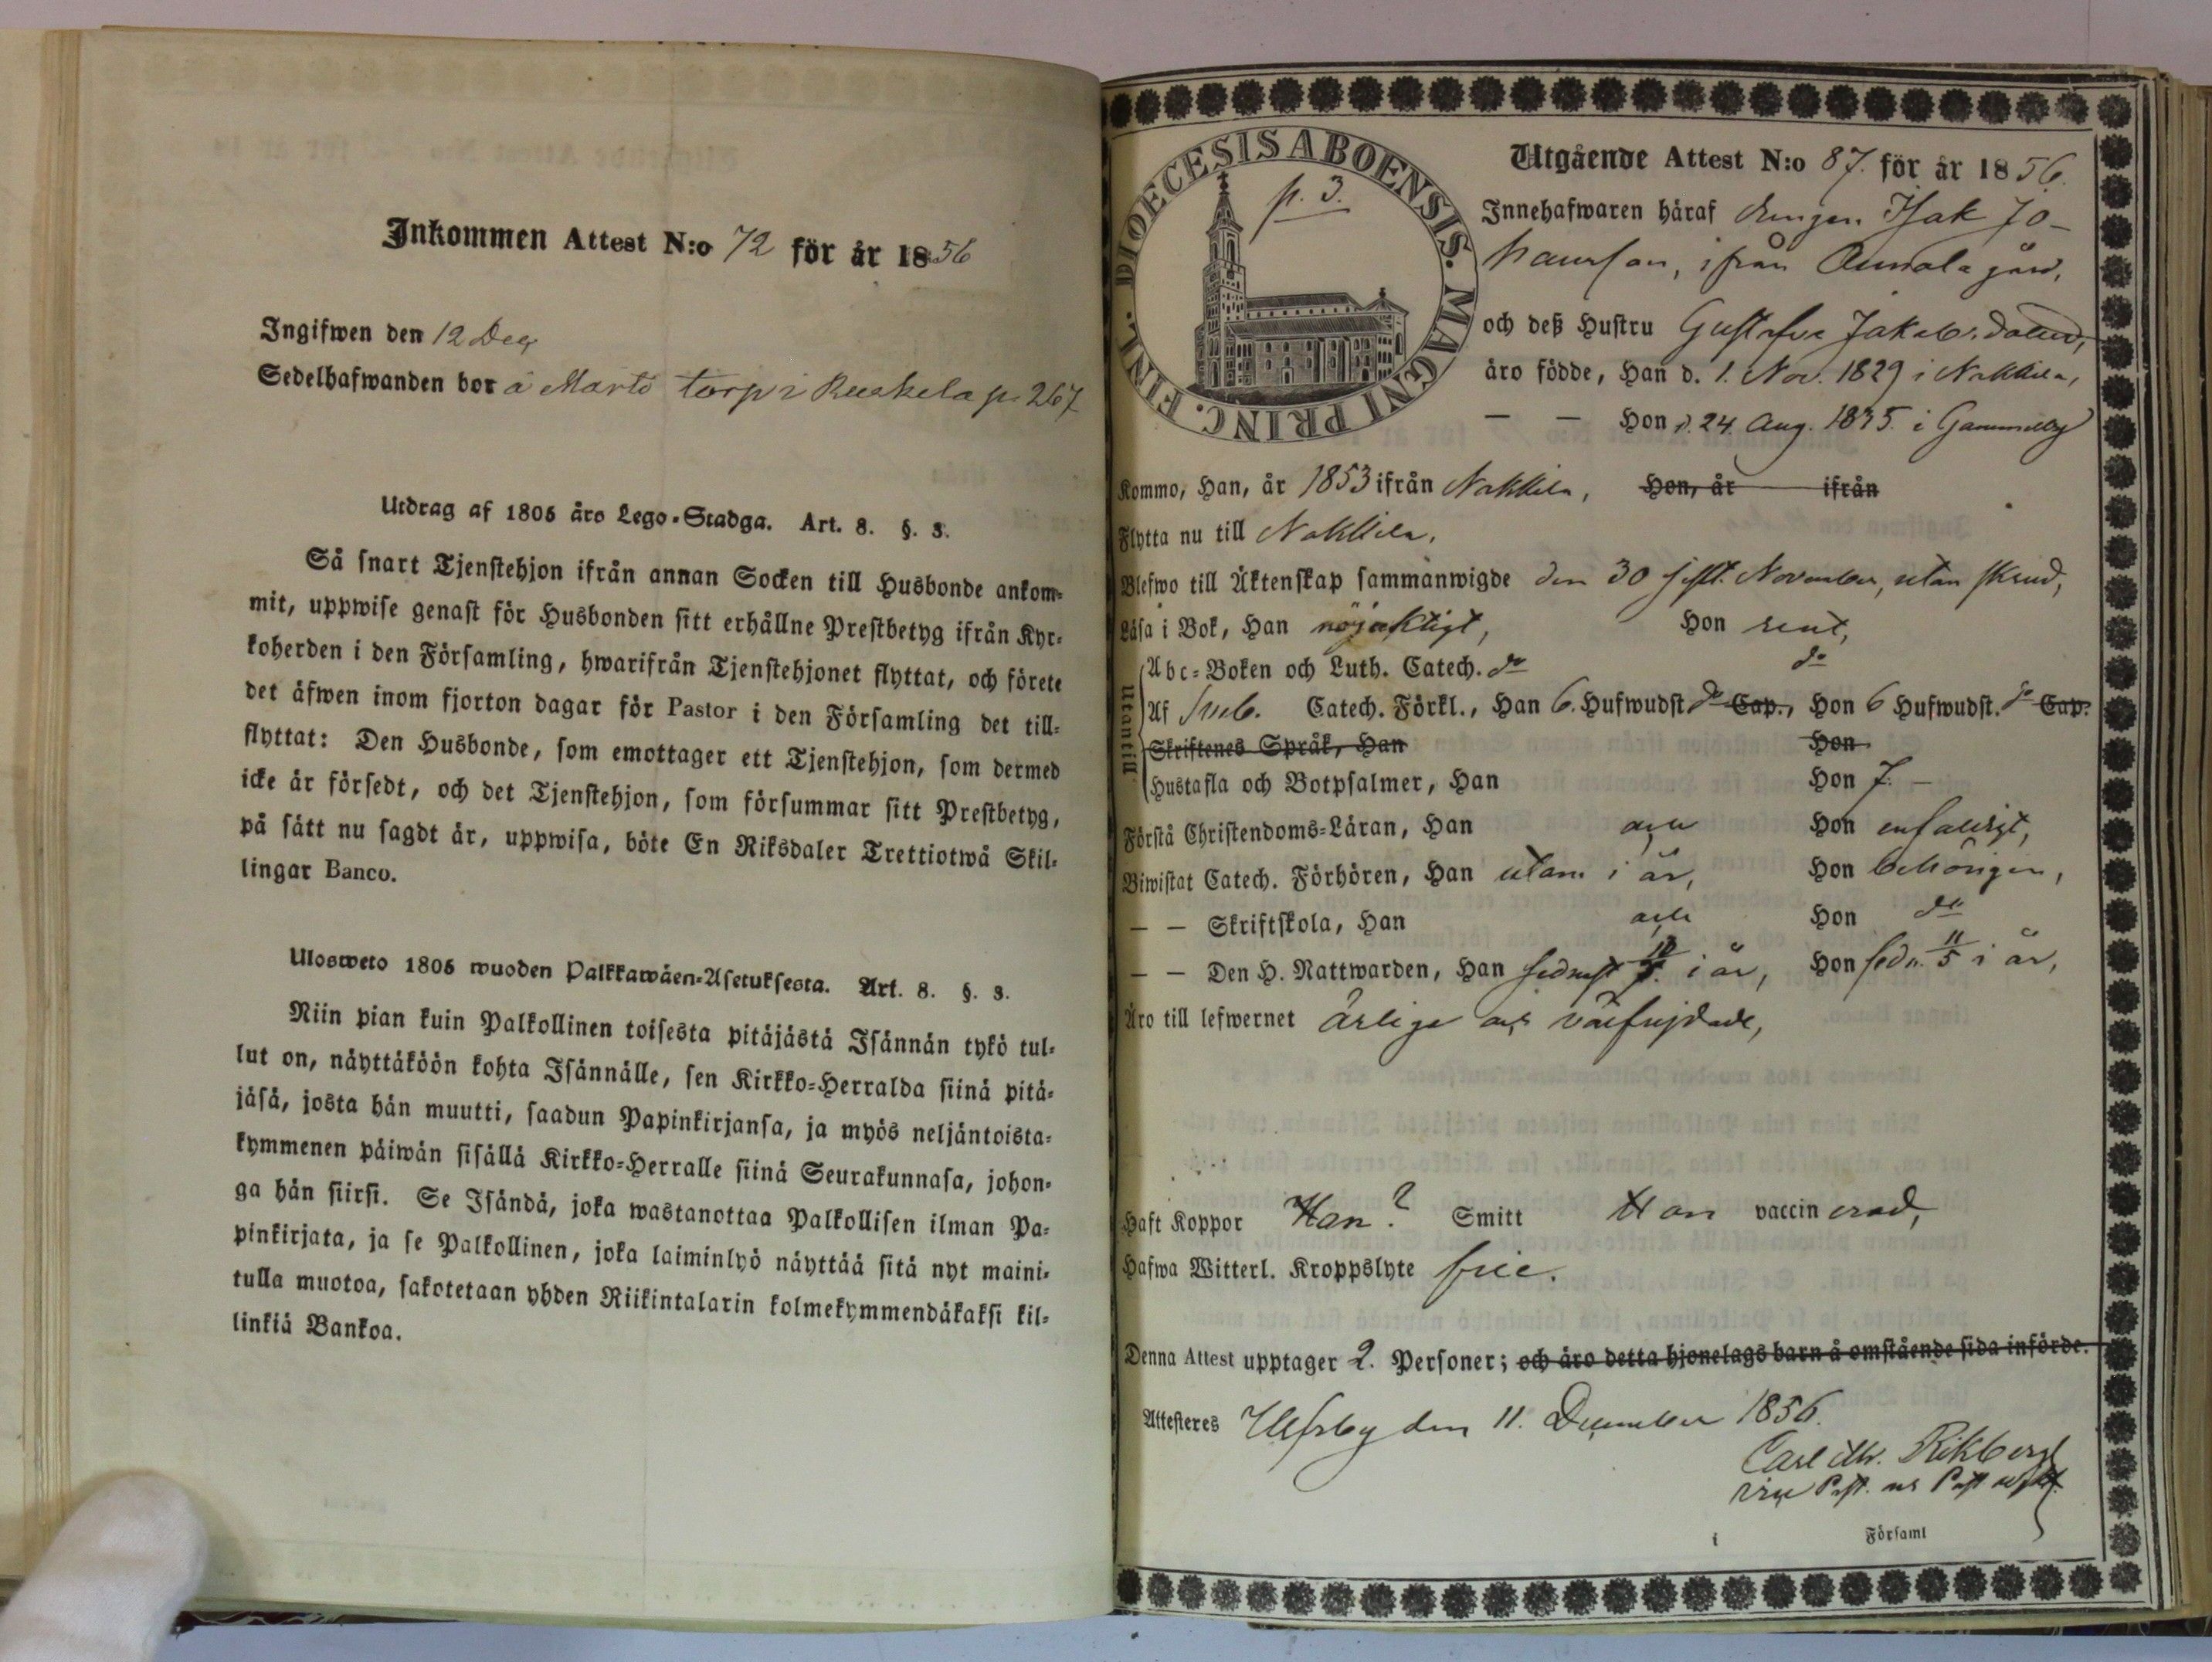 Inkommen Attest N:o 72 för år 1856
Ingifwen den 12 Dec
Sedelhafwanden bor å Marto torp i Ruskela p. 267
Utdrag af 1805 års Lego-Stadga. Art. 8. §. 3.
Så snart Tjenstehjon ifrån annan Socken till Husbonde ankom-
mit, uppwise genast för Husbonden sitt erhållne Prestbetyg ifrån Kyr-
koherden i den Församling, hwarifrån Tjenstehjonet flyttat, och förete
det äfwen inom fjorton dagar för Pastor i den Församling det till-
flyttat: Den Husbonde, som emottager ett Tjenstehjon, som dermed
icke är försedt, och det Tjenstehjon, som försummar sitt Prestbetyg,
på sätt nu sagdt är, uppwisa, böte En Riksdaler Trettiotwå Skil-
lingar Banco.
Ulosweto 1805 wuoden Palkkawäen-Asetuksesta. Art. 8. §. 3.
Niin pian kuin Palkollinen toisesta pitäjästä Isännän tykö tul-
lut on, näyttäköön kohta Isännälle, sen Kirkko-Herralda siinä pitä-
jäsä, josta hän muutti, saadun Papinkirjansa, ja myös neljäntoista-
kymmenen päiwän sisällä Kirkko-Herralle siinä Seurakunnasa, johon-
ga hän siirsi. Se Isändä, joka wastanottaa Palkollisen ilman Pa-
pinkirjata, ja se Palkollinen, joka laiminlyö näyttää sitä nyt maini-
tulla muotoa, sakotetaan yhden Riikintalarin kolmekymmendäkaksi kil-
linkiä Bankoa.
DIOECESIS ABOENSIS. MAGNI PRINC. FINL.
p. 3.
Utgående Attest N:o 87. för år 1856.
Innehafwaren häraf drengen Isak Jo-
hansson, ifrån Annala gård,
och deß Hustru Gustafva Jakobsdotter,
äro födde, Han d. 1. Nov. 1829 i Nakkila,
— — Hon d. 24 Aug. 1835. i Gammelby
Kommo, Han, år 1853 ifrån Nakkila, Hon, år ifrån
Flytta nu till Nakkila.
Blefwo till Äktenskap sammanwigde den 30 sistl. November, utan skrud,
Läsa i Bok, Han nöjaktigt, Hon rent,
Utantill
Abc-Boken och Luth. Catech. do do
Af Sveb. Catech. Förkl., Han 6. Hufwudst. do Cap., Hon 6 Hufwudst. do Cap.
Skriftenes Språk, Han Hon
Hustafla och Botpsalmer, Han Hon 7. —
Förstå Christendoms-Läran, Han och Hon enfaldigt,
Biwistat Catech. Förhören, Han utom i år, Hon behörigen,
— — Skriftskola, Han och Hon do
— — Den H. Nattwarden, Han sednast i år, Hon sedn. 11/5 i år,
Äro till lefwernet ärliga och välfrejdade,
Haft Koppor Han? Smitt Hon vaccinerad,
Hafwa Witterl. Kroppslyte frie.
Denna Attest upptager 2. Personer; och äro detta hjonelags barn å omstående sida införde.
Attesteres Ulfsby den 11. December 1856.
Carl Rikberg
vice Past.
i Församl